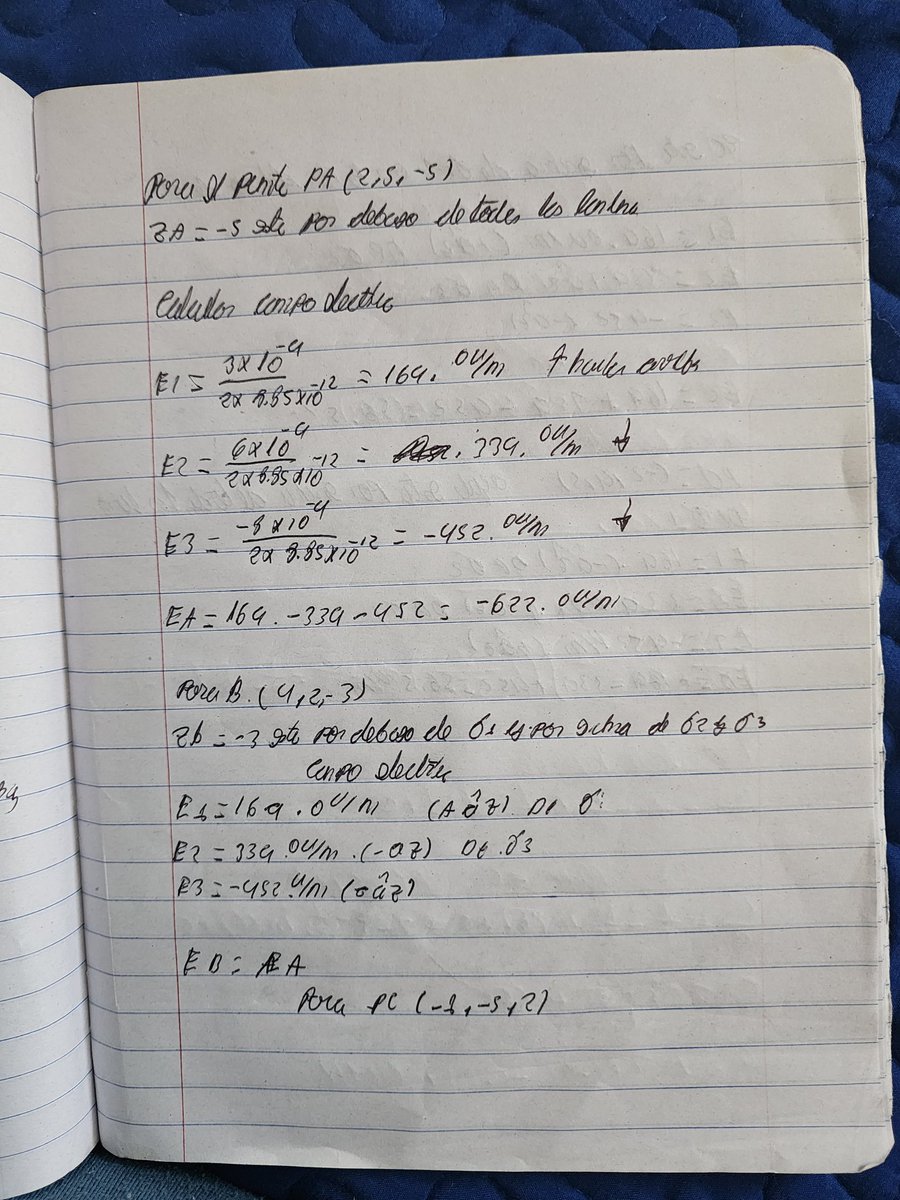 Para el punto PA (2,5,-5)
ZA = -5 este por debajo de todas las
Calculos campo electrico
E1 = 3x10^-9 / 2x8.85x10^-12 = 169.0 V/m ↑ hacia arriba
E2 = 6x10^-9 / 2x8.85x10^-12 = 339.0 V/m ↓
E3 = -8x10^-9 / 2x8.85x10^-12 = -452.0 V/m ↓
EA = 169.-339-452 = -622.0 V/m
Para B. (4,2,-3)
Zb = -3 este por debajo de σ1 y por encima de σ2 y σ3
Campo electric
E1 = 169.0 V/m (A âz) De σ
E2 = 339.0 V/m.(-az) De.σ3
E3 = -452.V/m (âz)
EB = EA
Para PC (-1,-5,2)